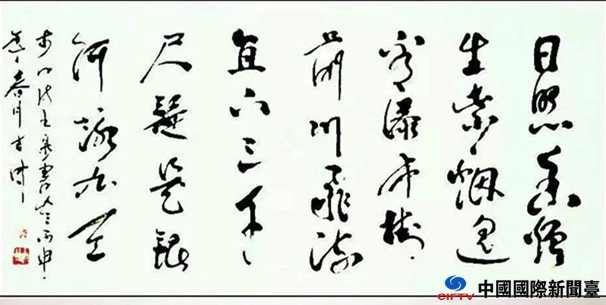 日照香爐
生紫烟遥
看瀑布掛
前川飛流
直下三千
尺疑是銀
河落九天
丙申
春月
CIFTV 中國國際新聞臺